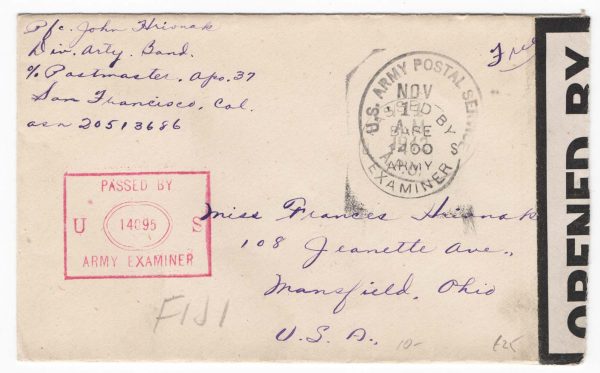 Pfc. John Hrionak
Div. Arty. Band.
% Postmaster, Apo. 37
San Francisco, Cal.
asn 20513686
Free
U.S. ARMY POSTAL SERVICE
NOV
A.M.
PASSED BY
BASE
1400 S
ARMY
EXAMINER
PASSED BY
U 14095 S
ARMY EXAMINER
Miss Frances Hrionak
108 Jeanette Ave.,
Mansfield, Ohio
U.S.A.,
FIJI
10-
OPENED BY